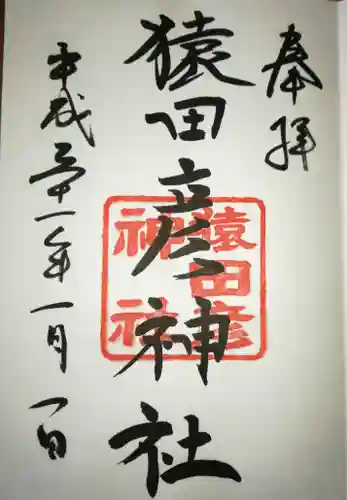 奉拝
猿田彦神社
猿田彦
神社
平成三十一年一月一日